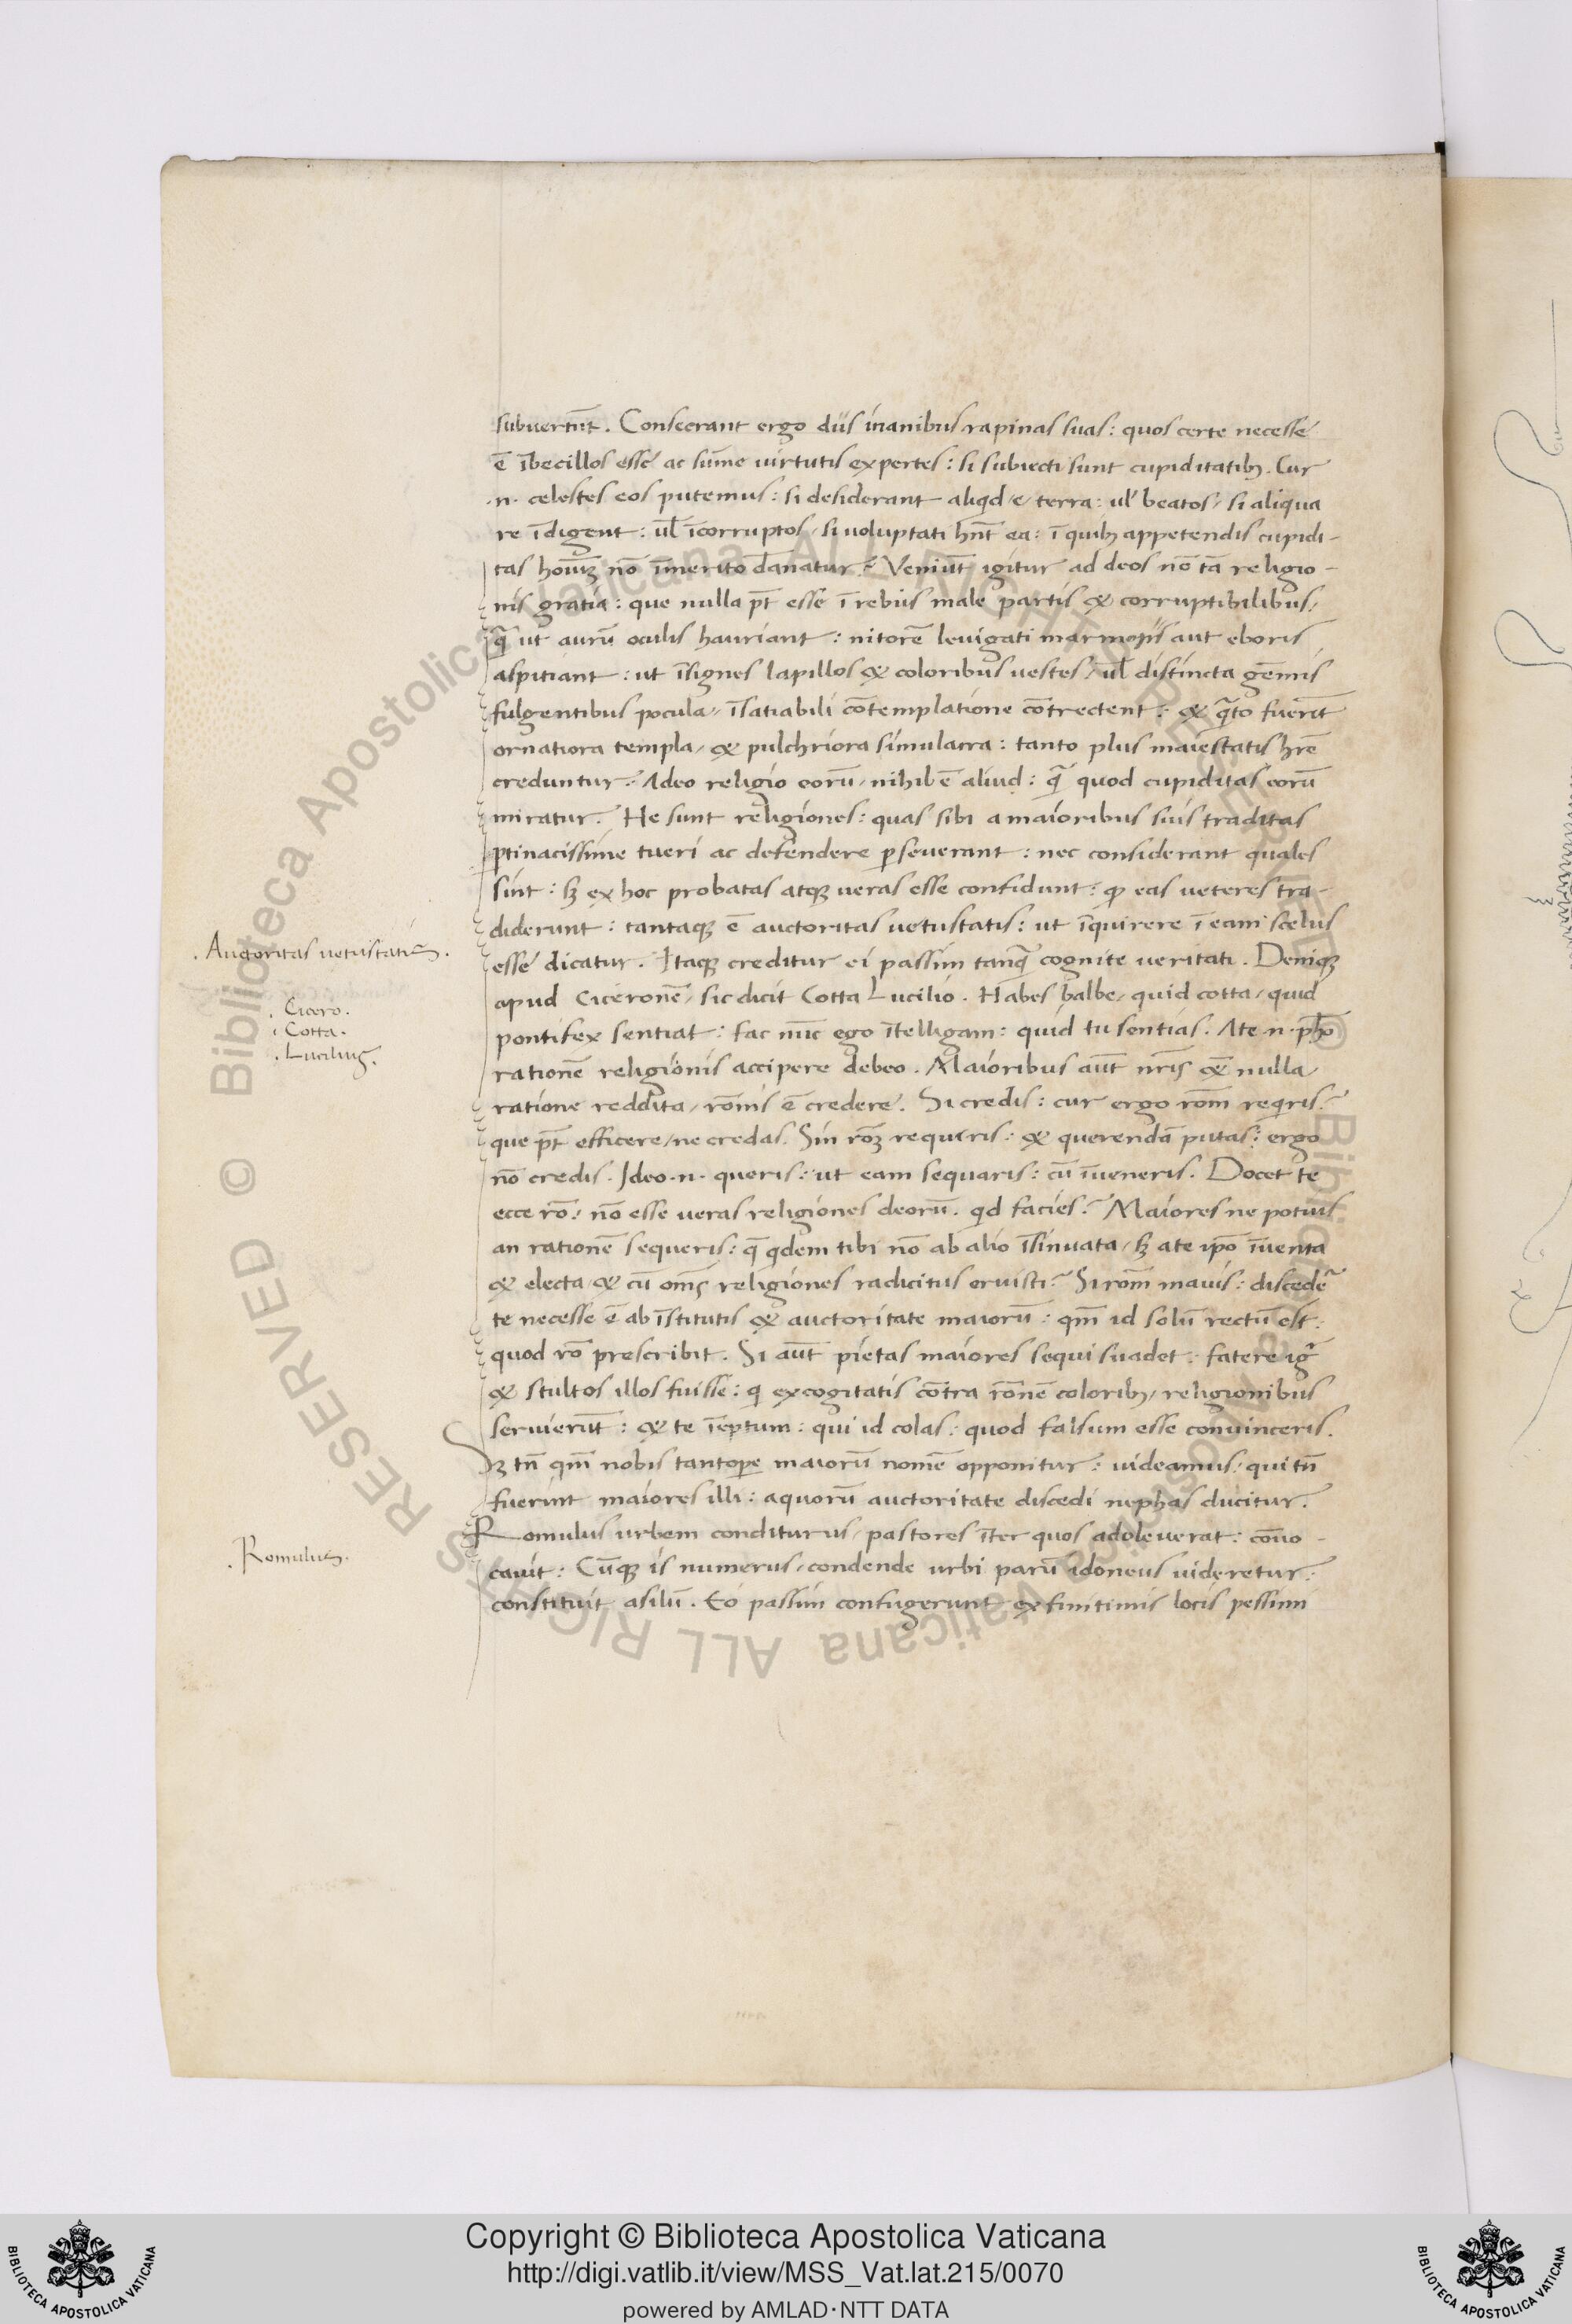 subuertūt. Consecrant ergo diis inanibus rapinas suas: quos certe necesse
ē ībecillos esse ac sūme uirtutis expertes: si subiecti sunt cupiditatibꝫ. Cur
.n. celestes eos putemus: si desiderant aliqd e terra: ul' beatos, si aliqua
re īdigent: ul' īcorruptos, si uoluptati hn̄t ea: ī quibꝫ appetendis cupidi-
tas hoīuꝫ nō īmerito dānatur? Veniūt igitur ad deos nō tā religio-
nis gratia: que nulla pt̄ esse ī rebus male partis & corruptibilibus,
q̄ ut aurū oculis hauriant: nitorē leuigati marmoris aut eboris
aspitiant: ut īsignes lapillos & coloribus uestes, ul' distincta gēmis
fulgentibus pocula, īsatiabili cōtemplatione cōtrectent: & q̄to fuerīt
ornatiora templa, & pulchriora simulacra: tanto plus maiestatis hrē
creduntur. Adeo religio eorū, nihil ē aliud: q̄ quod cupiditas eorū
miratur. He sunt religiones: quas sibi a maioribus suis traditas
ꝑtinacissime tueri ac defendere ꝑseuerant: nec considerant quales
sint: sꝫ ex hoc probatas atqꝫ ueras esse confidunt: ꝙ eas ueteres tra-
diderunt: tantaqꝫ ē auctoritas uetustatis: ut īquirere ī eam scelus
. Auctoritas uetustatis.
esse dicatur. Itaqꝫ creditur ei passim tanq̄ cognite ueritati. Deniqꝫ
apud Ciceronē, sic dicit Cotta Lucilio. Habes balbe, quid cotta, quid
. Cicero.
. Cotta.
. Lucilius.
pontifex sentiat: fac nūc ego ītelligam: quid tu sentias. Ate .n. pho
rationē religionis accipere debeo. Maioribus aūt nr̄is &̄ nulla,
ratione reddita, rōnis ē credere. Si credis: cur ergo rōm reqris?
que pt̄ efficere, ne credas. Sin rōꝫ requiris: & querendā putas: ergo
nō credis. Ideo .n. queris: ut eam sequaris: cū īueneris. Docet te
ecce rō: nō esse ueras religiones deorū. qd facies? Maiores ne potius
an rationē sequeris: q̄ qdem tibi nō ab alio īsinuata, sꝫ ate ip̄o īuenta
& electa, & cū om̄s religiones radicitus eruisti? Si rōm mauis: discedē
te necesse ē ab īstitutis & auctoritate maiorū: qm̄ id solū rectū est:
quod rō prescribit. Si aūt pietas maiores sequi suadet: fatere igr̄
& stultos illos fuisse: q excogitatis cōtra rōnē coloribꝫ, religionibus
seruierūt: & te īeptum: qui id colas: quod falsum esse conuinceris.
Sꝫ tn̄ qm̄ nobis tantoꝑe maiorū nomē opponitur: uideamus, qui tn̄
fuerint maiores illi: aquorū auctoritate discedi nephas ducitur.
Romulus urbem conditurus, pastores īter quos adoleuerat: cōuo-
. Romulus.
cauit: Cūqꝫ is numerus, condende urbi parū idoneus uideretur:
constituit asilū. Eo passim confugerunt ex finitimis locis pessimi
© Biblioteca Apostolica Vaticana ALL RIGHTS RESERVED
Copyright © Biblioteca Apostolica Vaticana
http://digi.vatlib.it/view/MSS_Vat.lat.215/0070
powered by AMLAD·NTT DATA
BIBLIOTECA APOSTOLICA VATICANA
BIBLIOTECA APOSTOLICA VATICANA